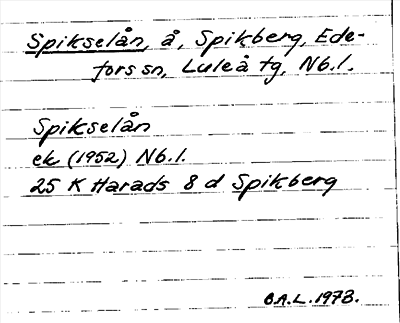 Spikselån, å, Spikberg, Ede-
fors sn, Luleå tg, Nb.l.
Spikselån
ek (1952) Nb.l.
25 K Harads 8 d Spikberg
B.A.L. 1973.